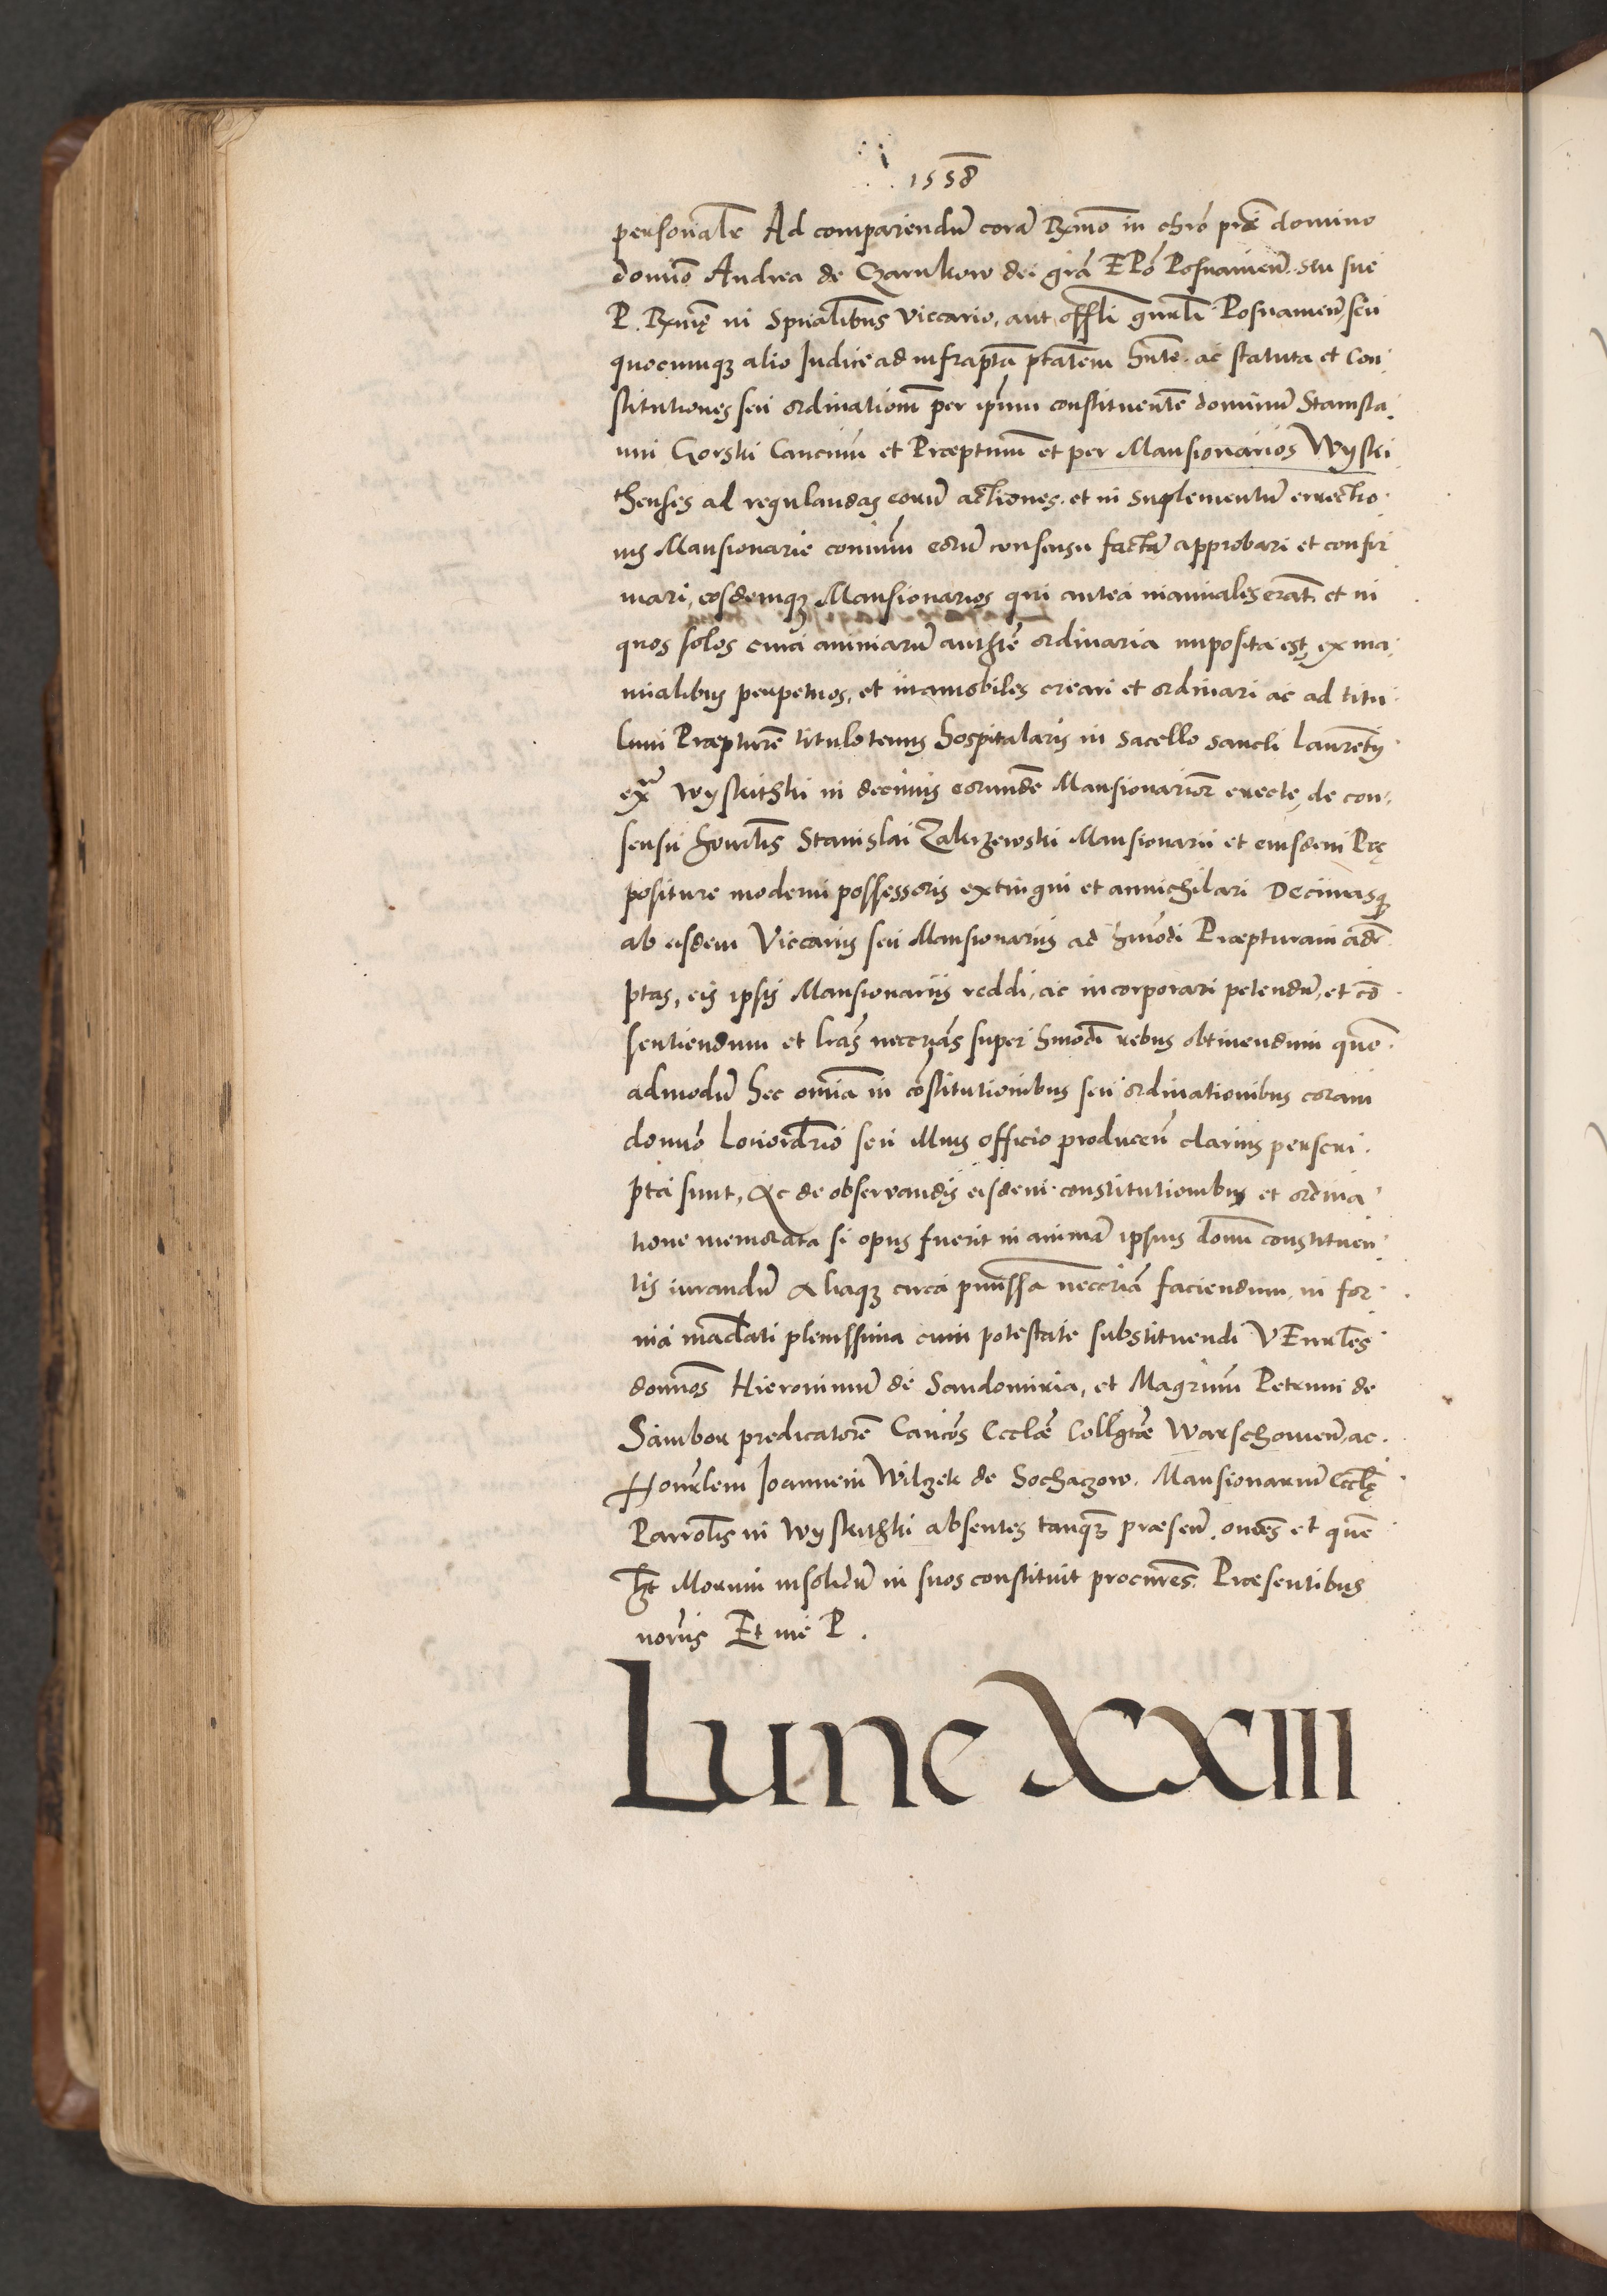 1558
personalr Ad compariendū corā Rxmo in chro prē domino
domīo Andrea de Czarnkow dei grā EPō Posnanien̄. seu sue
P. Rxmę in Spūalibus Viccario, aut offli gnrli Posnanien̄, seu
quocumqz alio Iudice ad infraptā ptatem hnte. ac statuta et Con
stitutiones seu ordinationm̄ per ipsum constituentē dominū Stanisla
um Gorski Canonm̄ et Præptum̄ et per Mansionarios Wyski
thenses ad regulandas eorū actiones. et in Suplementū errectio
nis Mansionarie comum̄ eorū consensu factā approbari et confir
mari, eosdemqz Mansionarios qui antea manuales erāt, et in
quos solos cura animarū authrē ordinaria imposita est, ex ma
nualibus perpetuos, et inamobiles creari et ordinari ac ad titu
lum Præpturē titulotenus hospitalaris in sacello sancti Laurentij
exa Wyskithki in decimis eorundē Mansionarior̄ erecte, de con
sensu honrlis Stanislai Zakrzewski Mansionarii et eiusdem Prę
positure moderni possessoris extingui et annichilari Decimasqz
ab eisdem Viccariis seu Mansionariis ad hmōdi Præpturam adē
ptas, eis ipsis Mansionariis reddi, ac incorporari petendū, et cō
sentiendum et lrās neccrias super hmōdi rebus obtinendum quē
admodū hec omīa in cōstitutionibus seu ordinationibus coram
domīo Lociordrio seu illius officio producen̄ clarius perscri
pta sunt, Ac de observandis eisdem constitutionibus et ordina
tione memorata si opus fuerit in animā ipsius domī constituen
tis iurandū Aliaqz circa pmissa neccriā faciendum, in for
ma mādati plenissima cum potestate substituendi VEnrles
domīos Hieronimū de Sandomiria, et Magrum Petrum de
Sambor predicatorē Canōcos Ecclæ Collgtæ Warschovien̄, ac
Honrlem Ioannem Wilczek de Sochaczow. Mansionariū Ecclę
Parrolis in Wyskithki absentes tanqz præsen̄. omēs et quē
lt̄ Morum insolidū in suos constituit procures. Præsentibus
noriis Et me P.
Lune XXIII